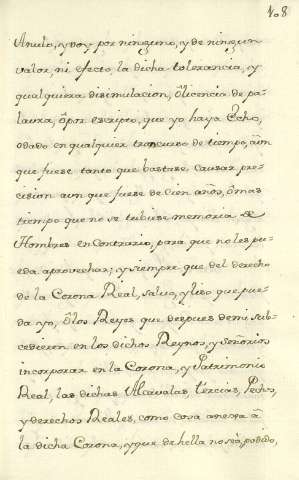 408
Anulo, y doy por ninguno, y de ningun
valor, ni efecto, la dicha tolerancia, y
qualquiera disimulacion, ô licencia de pa-
laura, ô por escripto, que yo haya Echo,
odado en qualquier trancurso de tiempo, âun
que fuese tanto que bastase causar pre-
cision aun que fuese de Cien años, ô mas
tiempo que no se tubiese memoria de
Hombres en Contrario, para que no les pu-
eda aprovechar; y siempre que del derecho
de la Corona Real, salvo, y liso que pue-
da yo, ô los Reyes que despues de mi sub-
cedieren en los dichos Reynos, y Señorios
incorporar en la Corona, y Patrimonio
Real, las dichas Alcavalas, tercias, Pechos,
y derechos Reales, como cosa anexa â
la dicha Corona, y que de hella no sea, podido,